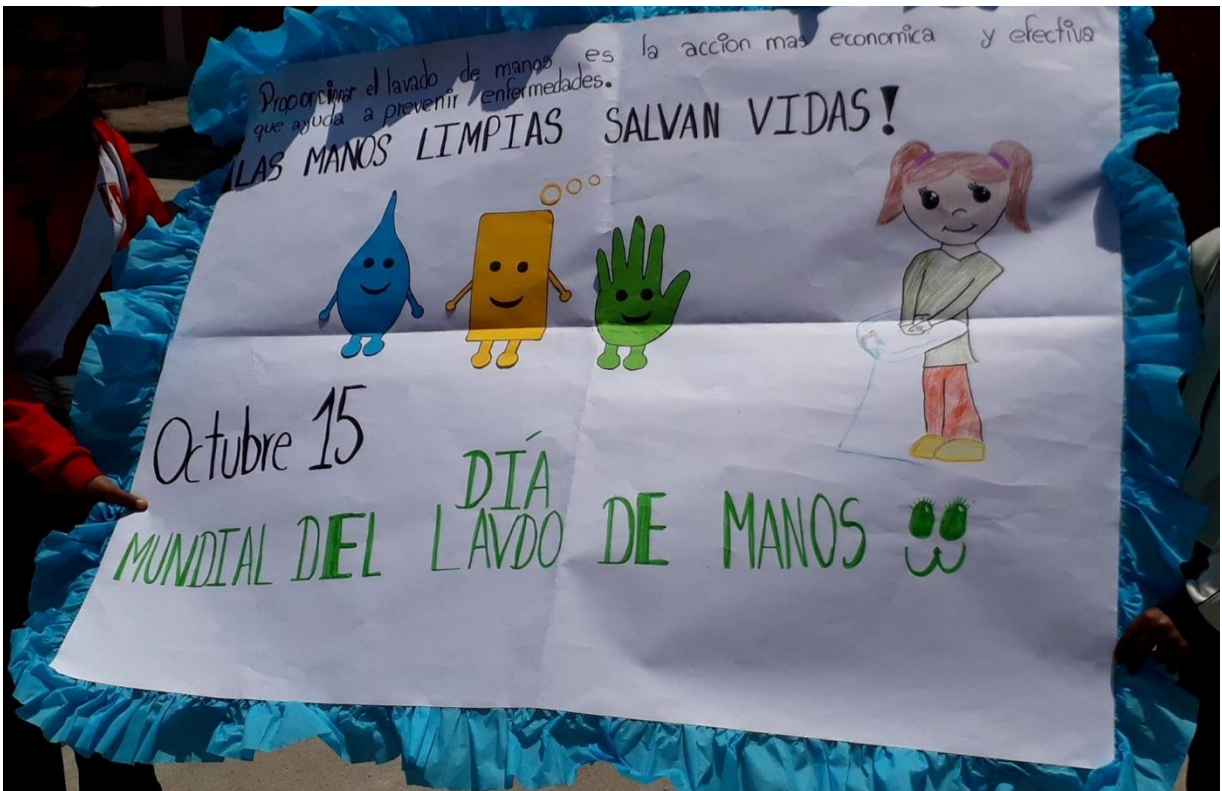 Proporcionar el lavado de manos es la accion mas economica y efectiva
que ayuda a prevenir enfermedades.
¡LAS MANOS LIMPIAS SALVAN VIDAS!
Octubre 15
DÍA
MUNDIAL DEL LAVDO DE MANOS